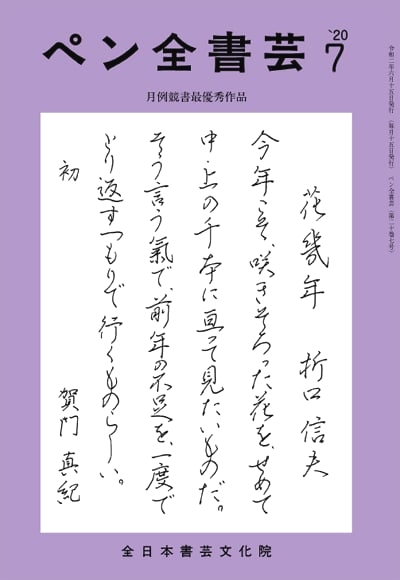 ペン全書芸 '20 7
月例競書最優秀作品
令和二年六月十五日発行(毎月十五日発行) ペン全書芸(第二十巻七号)
花幾年 折口信夫
今年こそ、咲きそろった花を、せめて
中・上の千本に亘って見たいものだ。
そう言う氣で、前年の不足を、一度で
とり返すつもりで行くものらしい。
初 賀門真紀
全日本書芸文化院